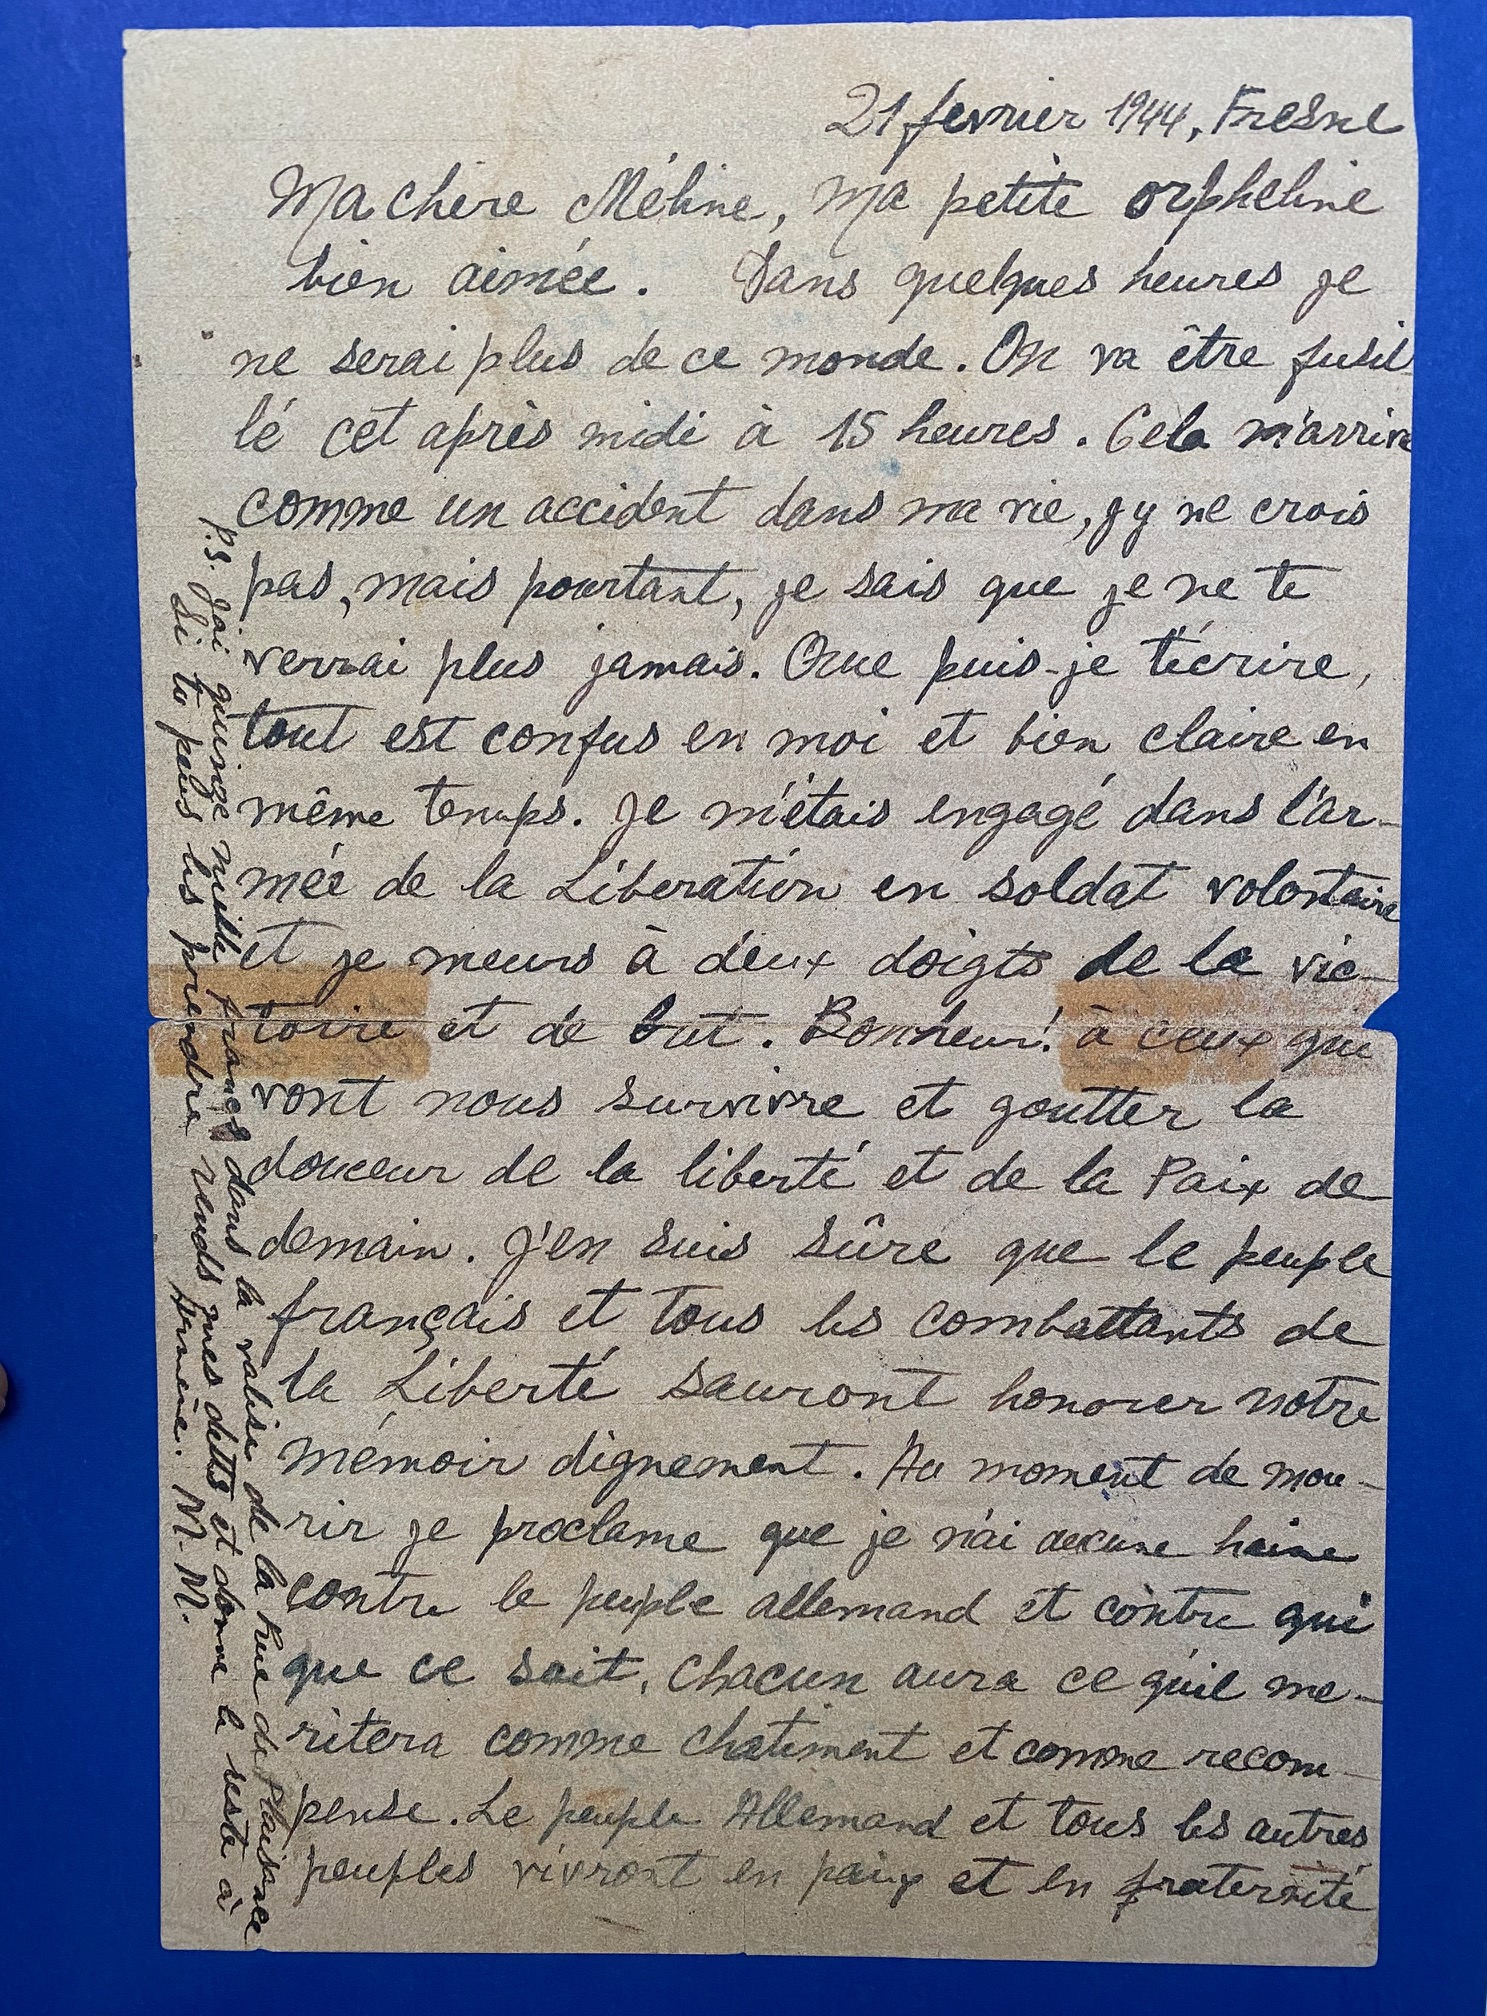 21 fevrier 1944, Fresne
Ma chère Méline, ma petite orpheline
bien aimée. Dans quelques heures je
ne serai plus de ce monde. On va être fusil
lé cet après midi à 15 heures. Cela m'arrive
comme un accident dans ma vie, j'y ne crois
pas, mais pourtant, je sais que je ne te
verrai plus jamais. Que puis-je t'écrire,
tout est confus en moi et bien claire en
même temps. Je m'étais engagé dans l'ar-
mée de la Libération en soldat volontaire
et je meurs à deux doigts de la vic-
toire et de but. Bonheur! à ceux qui
vont nous survivre et goutter la
douceur de la liberté et de la Paix de
demain. J'en suis sûre que le peuple
français et tous les combattants de
la Liberté sauront honorer notre
mémoir dignement. Au moment de mou-
rir je proclame que je n'ai aucune haine
contre le peuple allemand et contre qui
que ce soit. Chacun aura ce qu'il me-
ritera comme chatiment et comme recom-
pense. Le peuple Allemand et tous les autres
peuples vivront en paix et en fraternité
p.s. J'ai quinze mille francs dans la valise de la Rue de Plaisance
Si tu peus les prendre rends mes dettes et donne le reste à
Armène. M. M.